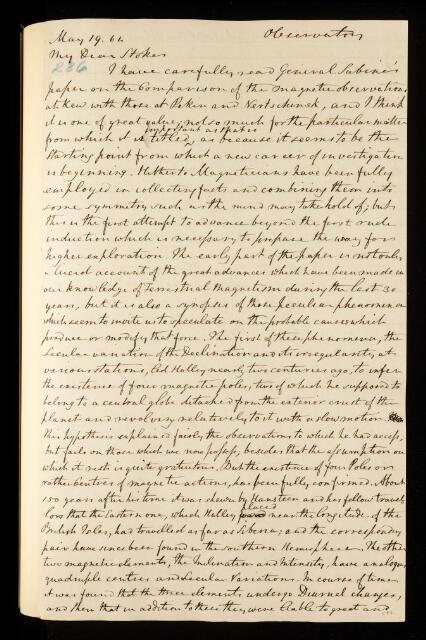 May 19. 64 Observatory
My Dear Stokes
236 I have carefully read General Sabine's
paper on the Comparison of the magnetic observations
at Kew with those at Pekin and Nertschinsk, and I think
it is one of great value; not so much for the particular matter
from which it is titled, important as that is as because it seems to be the
starting point from which a new career of investigation
is beginning. Hitherto Magneticians have been fully
employed in collecting facts and combining them into
some symmetry such as the mind may take hold of; but
this is the first attempt to advance beyond the first rude
induction which is necessary to prepare the way for
higher exploration. The early part of the paper is not only
a lucid account of the great advances which have been made in
our knowledge of Terrestrial Magnetism during the last 30
years, but it is also a synopsis of those peculiar phenomena
which seem to invite us to speculate on the probable causes which
produce or modify that force. The first of these phenomena, the
Secular variation of the Declination and its irregularities, at
various stations, led Halley nearly two centuries ago, to infer
the existence of four magnetic poles, two of which he supposed to
belong to a central globe detached from the exterior crust of the
planet and revolving relatively to it with a slow motion
This hypothesis explained fairly the observations to which he had access,
but fails on those which we now possess, besides that the assumption on
which it rests is quite gratuitous. But the existence of four Poles or
rather Centres of magnetic actions, has been fully confirmed. About
150 years after his time it was shewn by Hansteen and his fellow travel
lers that the Eastern one, which Halley placed near the longitude of the
British Isles, had travelled as far as Siberia; and the corresponding
pair have since been found in the Southern Hemisphere. The other
two magnetic elements, the Inclination and Intensity, have analogous
quadruple centres and Secular Variations. In course of time
it was found that the three elements undergo Diurnal changes,
and then that in addition to these they were liable to great and